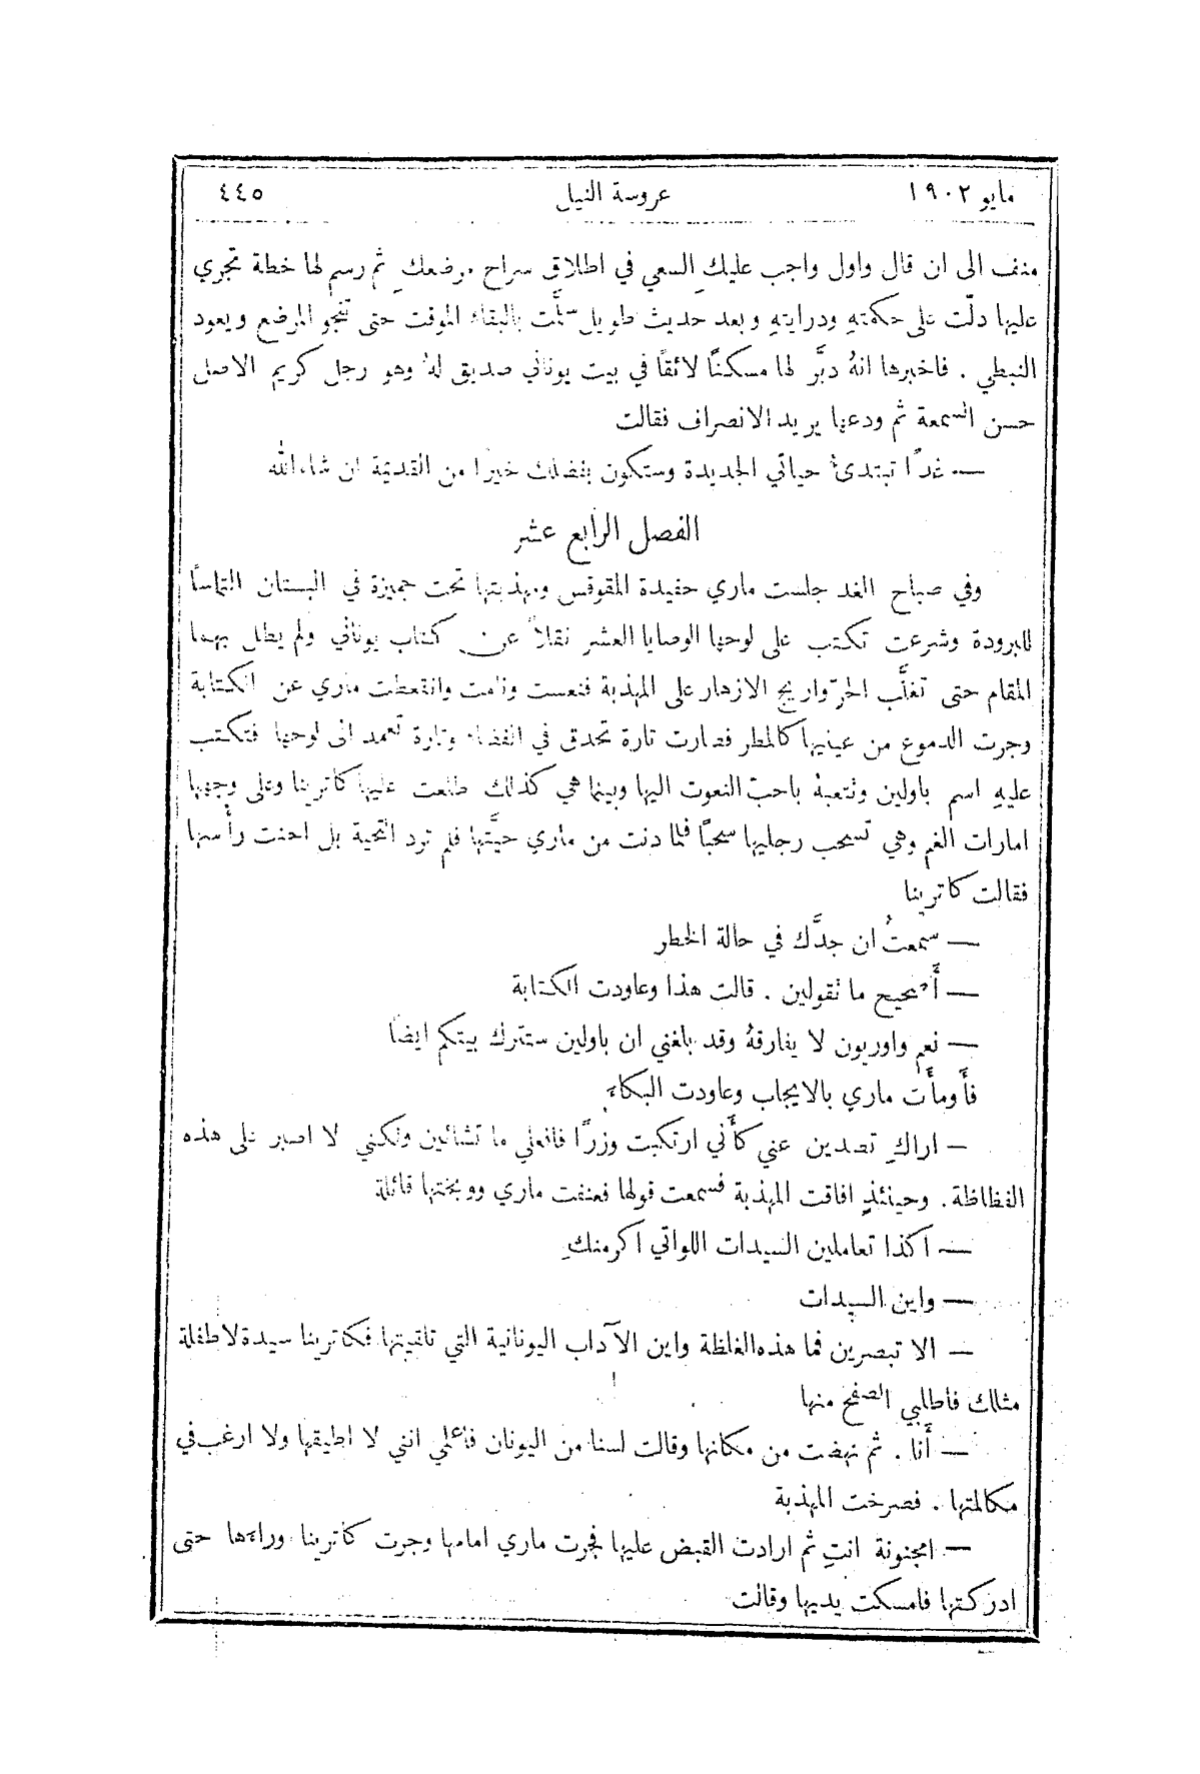 مايو ١٩٠٢ عروسة النيل ٤٤٥
منف الى ان قال واول واجب عليكِ السعي في اطلاق سراح مرضعكِ ثم رسم لها خطة تجري
عليها دلَّت على حكمتهِ ودرايتهِ وبعد حديث طويل سلَّمت بالبقاء الموقت حتى تنجو المرضع ويعود
النبطي . فاخبرها انهُ دبَّر لها مسكنًا لائقًا في بيت يوناني صديق لهُ وهو رجل كريم الاصل
حسن السمعة ثم ودعها يريد الانصراف فقالت
— غدًا تبتدئ حياتي الجديدة وستكون بفضلك خيرًا من القديمة ان شاء الله
الفصل الرابع عشر
وفي صباح الغد جلست ماري حفيدة المقوقس ومهذبتها تحت جميزة في البستان التماسًا
للبرودة وشرعت تكتب على لوحها الوصايا العشر نقلاً عن كتاب يوناني ولم يطل بهما
المقام حتى تغلَّب الحرّ واريج الازهار على المهذبة فنعست ونامت وانقطعت ماري عن الكتابة
وجرت الدموع من عينيها كالمطر فصارت تارة تحدق في الفضاء وتارة تعمد الى لوحها فتكتب
عليهِ اسم باولين وتتعبهُ باحبّ النعوت اليها وبينما هي كذلك طلعت عليها كاترينا وعلى وجهها
امارات الغم وهي تسحب رجليها سحبًا فلما دنت من ماري حيَّتها فلم ترد التحية بل احنت رأسها
فقالت كاترينا
— سمعتُ ان جدَّك في حالة الخطر
— أَصحيح ما تقولين . قالت هذا وعاودت الكتابة
— نعم واوريون لا يفارقهُ وقد بلغني ان باولين ستترك بيتكم ايضًا
فأَومأَت ماري بالايجاب وعاودت البكاء
— اراكِ تصدين عني كأَني ارتكبت وزرًا فافعلي ما تشائين ولكنني لا اصبر على هذه
الفظاظة . وحينئذٍ افاقت المهذبة فسمعت قولها فعنفت ماري ووبختها قائلة
— اكذا تعاملين السيدات اللواتي اكرمنكِ
— واين السيدات
— الا تبصرين فما هذه الغلظة واين الآداب اليونانية التي تلقيتها فكاترينا سيدة لا طفلة
مثلك فاطلبي الصفح منها
— أَنا . ثم نهضت من مكانها وقالت لسنا من اليونان فاعلمي انني لا اطيقها ولا ارغب في
مكالمتها . فصرخت المهذبة
— امجنونة انتِ ثم ارادت القبض عليها فجرت ماري امامها وجرت كاترينا وراءها حتى
ادركتها فامسكت يديها وقالت